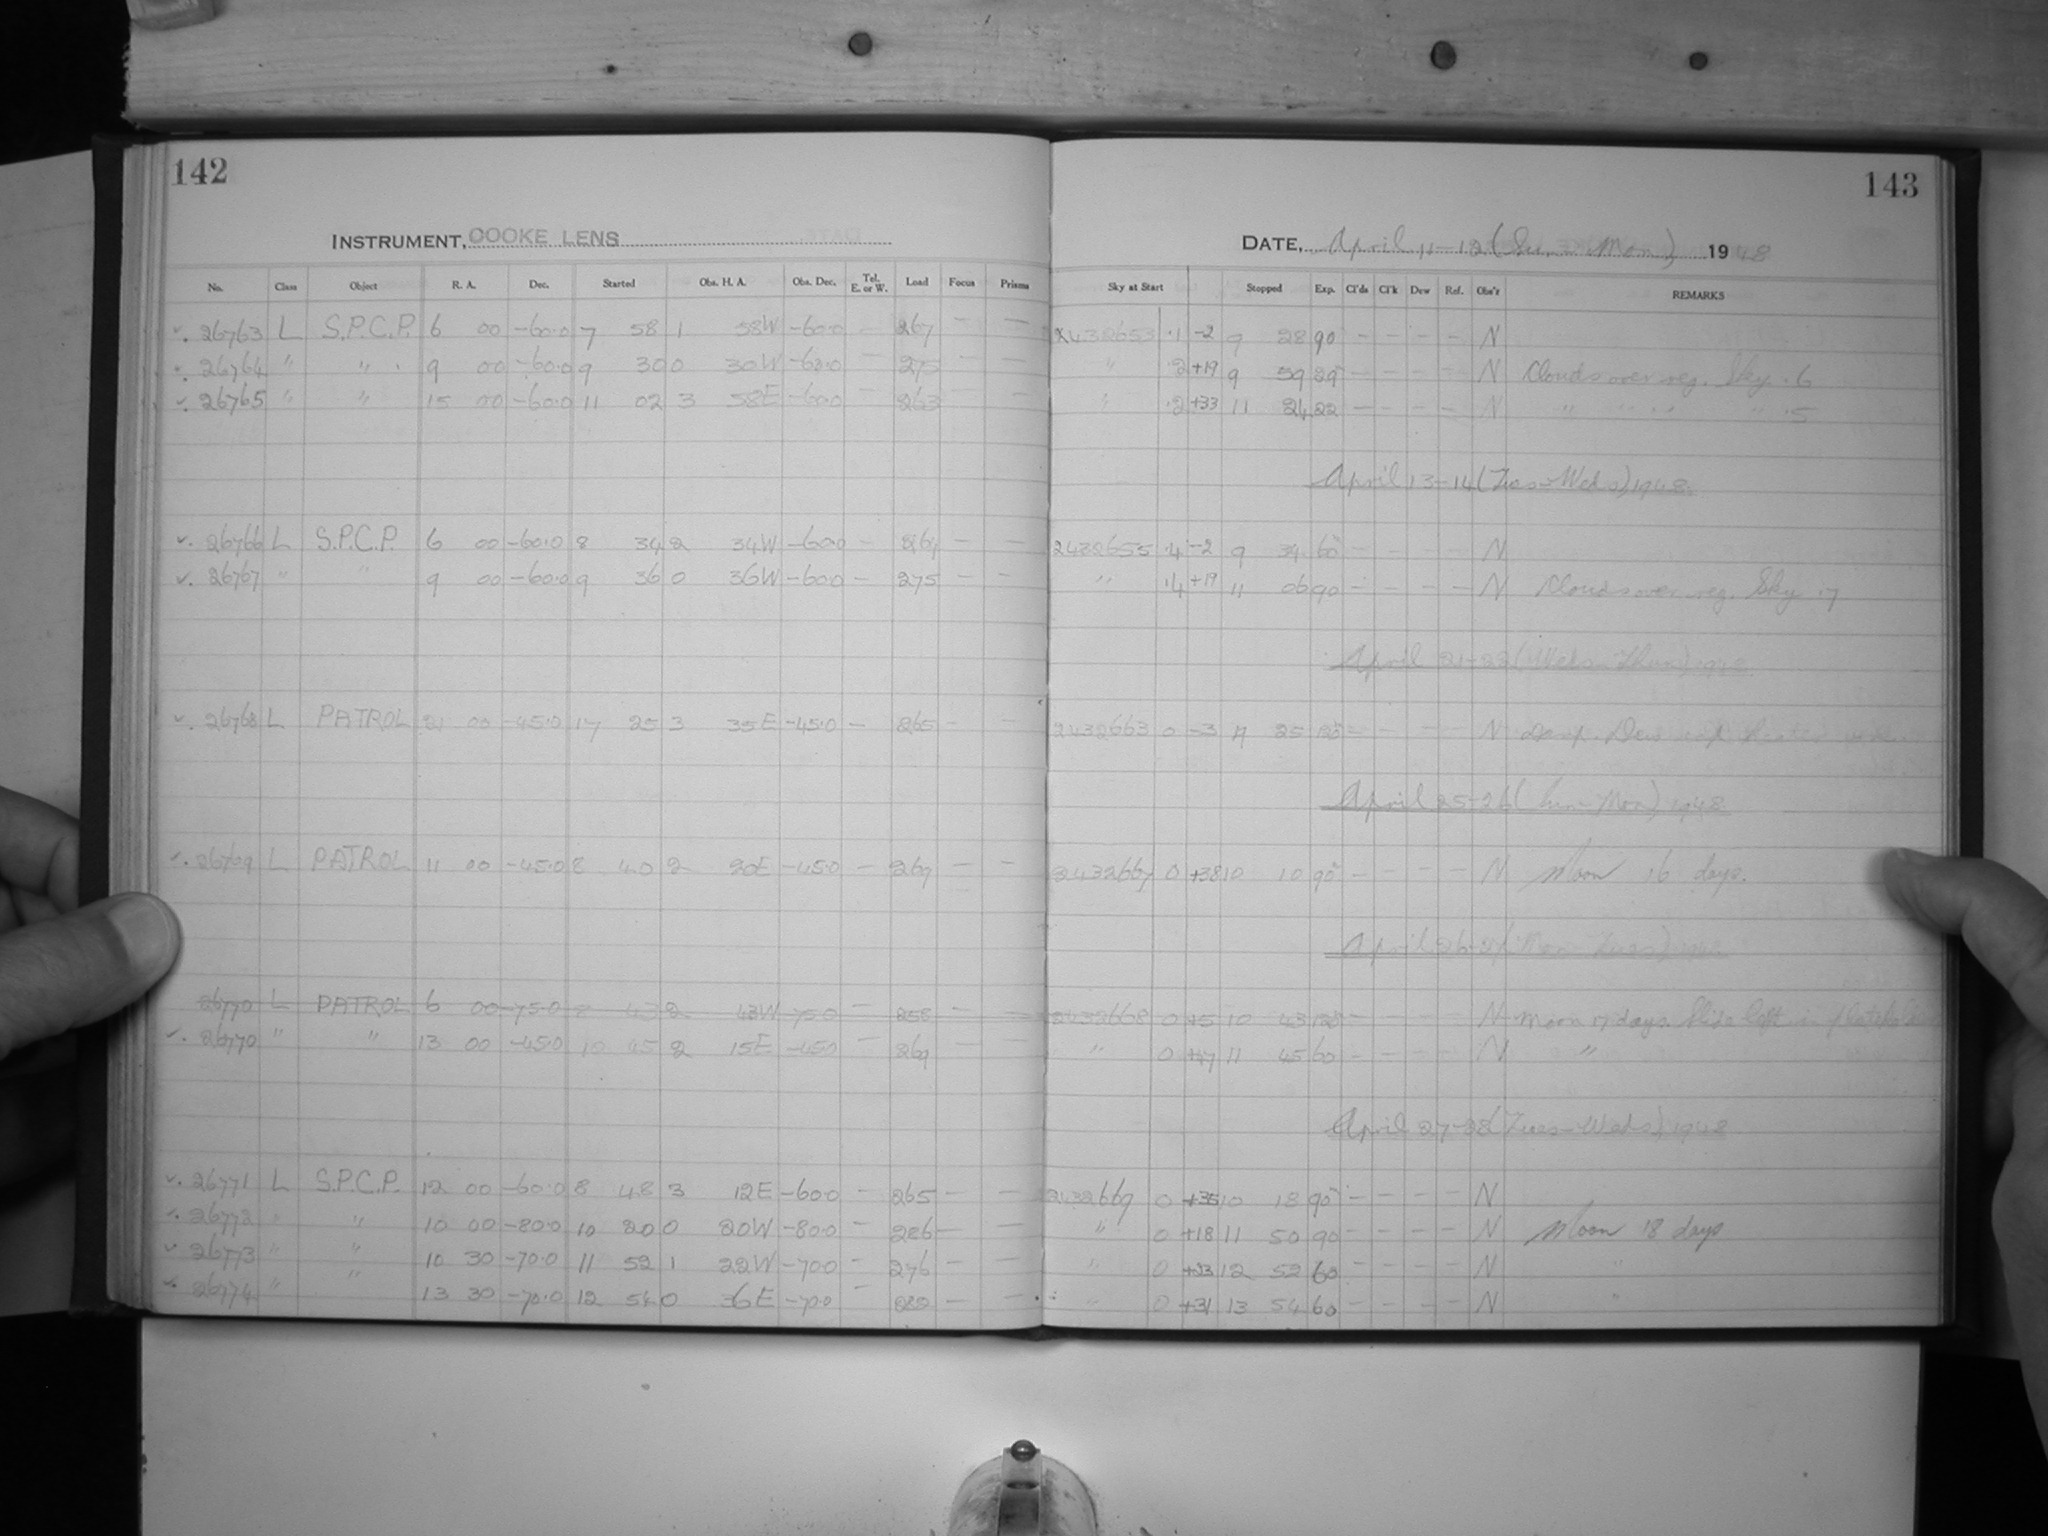 142
INSTRUMENT, COOKE LENS
No. Class Object R. A. Dec. Started Obs. H. A. Obs. Dec. Tel. E. or W. Load Focus Prisms
26763 L S.P.C.P. 6 00 -60.0 7 58 1 58W -60.0 - 267 - -
26764 " " 9 00 -60.0 9 30 0 30W -60.0 - 275 - -
26765 " " 15 00 -60.0 11 02 3 58E -60.0 - 263 -
26766 L S.P.C.P. 6 00 -60.0 8 34 2 34W -60.0 - 267 - -
26767 " " 9 00 -60.0 9 36 0 36W -60.0 - 275 - -
26768 L PATROL 21 00 -45.0 17 25 3 35E -45.0 - 265 - -
26769 L PATROL 11 00 -45.0 8 40 2 20E -45.0 - 269 - -
26770 L PATROL 6 00 -75.0 8 43 2 43W -75.0 - 258 - -
26770 " " 13 00 -45.0 10 45 2 15E -45.0 - 269 - -
26771 L S.P.C.P. 12 00 -60.0 8 48 3 12E -60.0 - 265 - -
26772 " " 10 00 -80.0 10 20 0 20W -80.0 - 286 - -
26773 " " 10 30 -70.0 11 52 1 22W -70.0 - 276 - -
26774 " " 13 30 -70.0 12 54 0 36E -70.0 - 282 - -
143
DATE, April 11-12 (Sun-Mon) 1948
Sky at Start Stopped Exp. Cl'ds Cl'k Dew Ref. Obs'r REMARKS
2432653 .1 -2 9 28 90 - - - - N
" .2 +19 9 59 29 - - - - N Clouds over reg. Sky .6
" .2 +33 11 24 22 - - - - N " " " " .5
April 13-14 (Tues-Weds) 1948
2432655 .4 -2 9 34 60 - - - - N
" .4 +19 11 06 90 - - - - N Clouds over reg. Sky .7
April 21-22 (Weds-Thur) 1948
2432663 0 -3 19 25 120 - - - - N Dew
April 25-26 (Sun-Mon) 1948
2432667 0 +38 10 10 90 - - - - N Moon 16 days.
April 26-27 (Mon-Tues) 1948
2432668 0 +5 10 43 120 - - - - N Moon 17 days. Slide left in
" 0 +47 11 45 60 - - - - N "
April 27-28 (Tues-Weds) 1948
2432669 0 +35 10 18 90 - - - - N
" 0 +18 11 50 90 - - - - N Moon 18 days
" 0 +23 12 52 60 - - - - N "
" 0 +31 13 54 60 - - - - N "